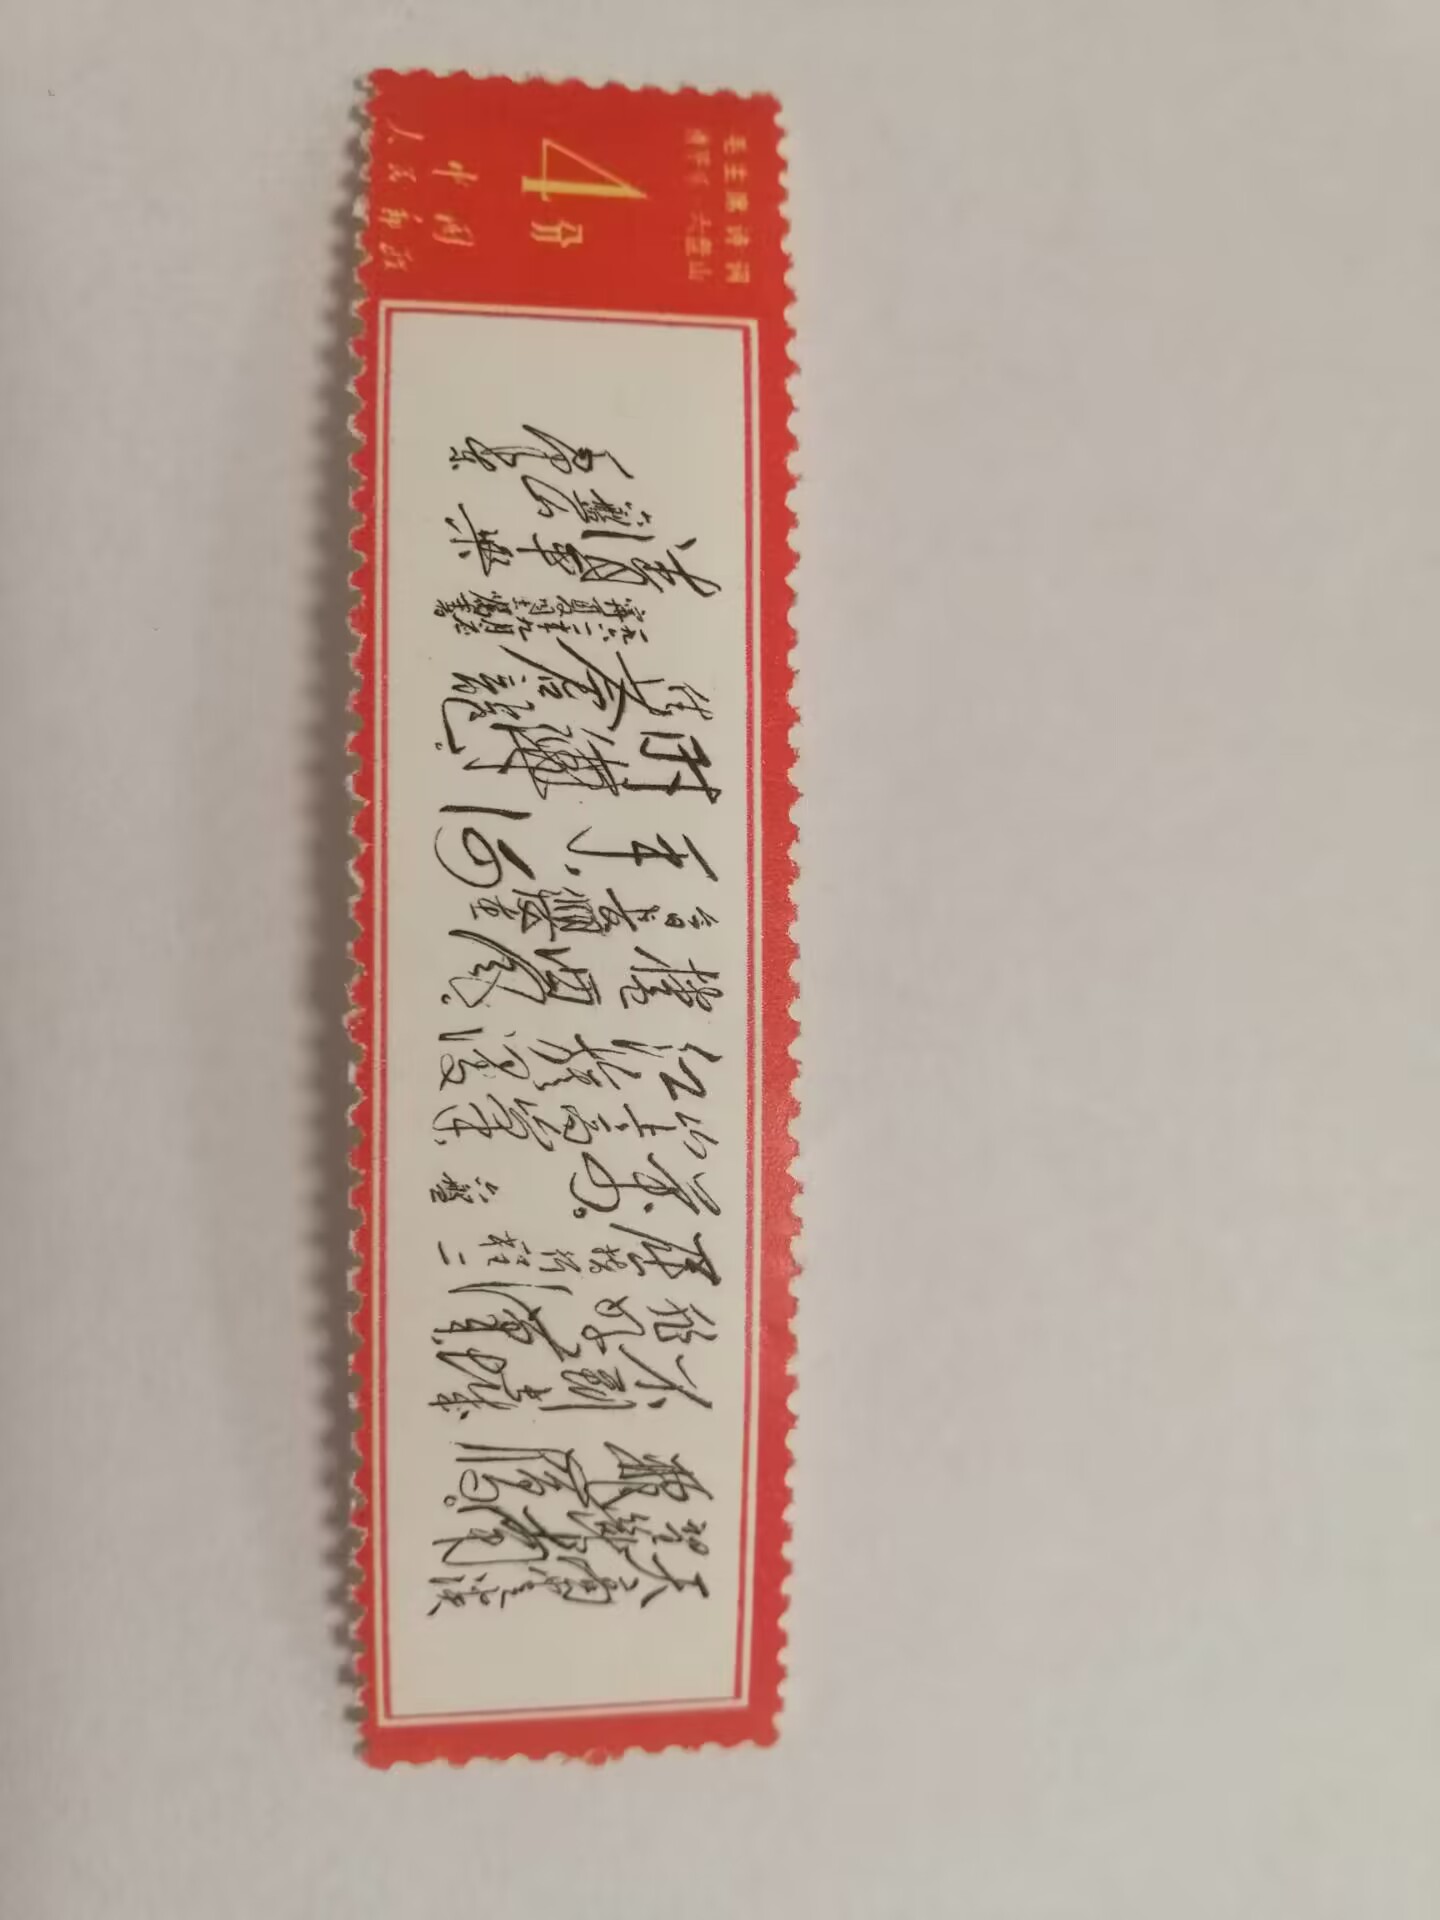 毛主席诗词
清平乐·六盘山
4分
中国
人民邮政
天高云淡，
望断南飞
雁。
不到长城
非好汉，
屈指行程二
万。六盘
山上高峰，
红旗漫卷
西风。
今日长缨在
手，何
时缚
住苍龙